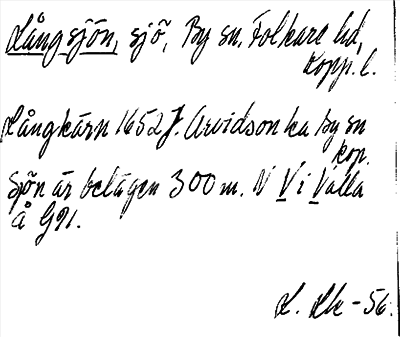 Långsjön, sjö, By sn, Folkare hd,
Kopp. l.
Långkärn 1652 J. Arvidson ka By sn
kop.
Sjön är belägen 300 m. N V i Valla
å G91.
L. Lk - 56.